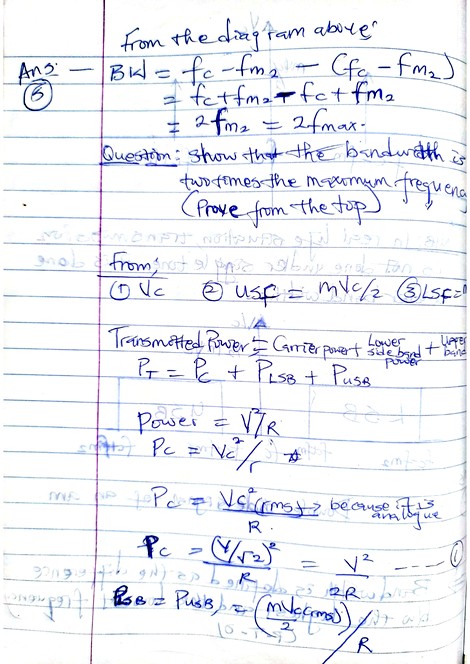 From the diagram above;
Ans: — BW = fc - fm2 - (fc - fm2)
(5) = fc + fm2 - fc + fm2
= 2fm2 = 2fmax.
Question: show that the bandwidth is
two times the maximum frequency
(Prove from the top)
From;
① Vc ② USF = mVc/2 ③ LSF =
Transmitted Power = Carrier power + Lower side band power + Upper band
PT = PC + PLSB + PUSB
Power = V²/R
Pc = Vc²/r
Pc = Vc²(rms)/R → because it is analogue
Pc = (V/√2)²/R = V²/2R ---- ①
PLSB = PUSB = (mVc(rms)/2)²/R